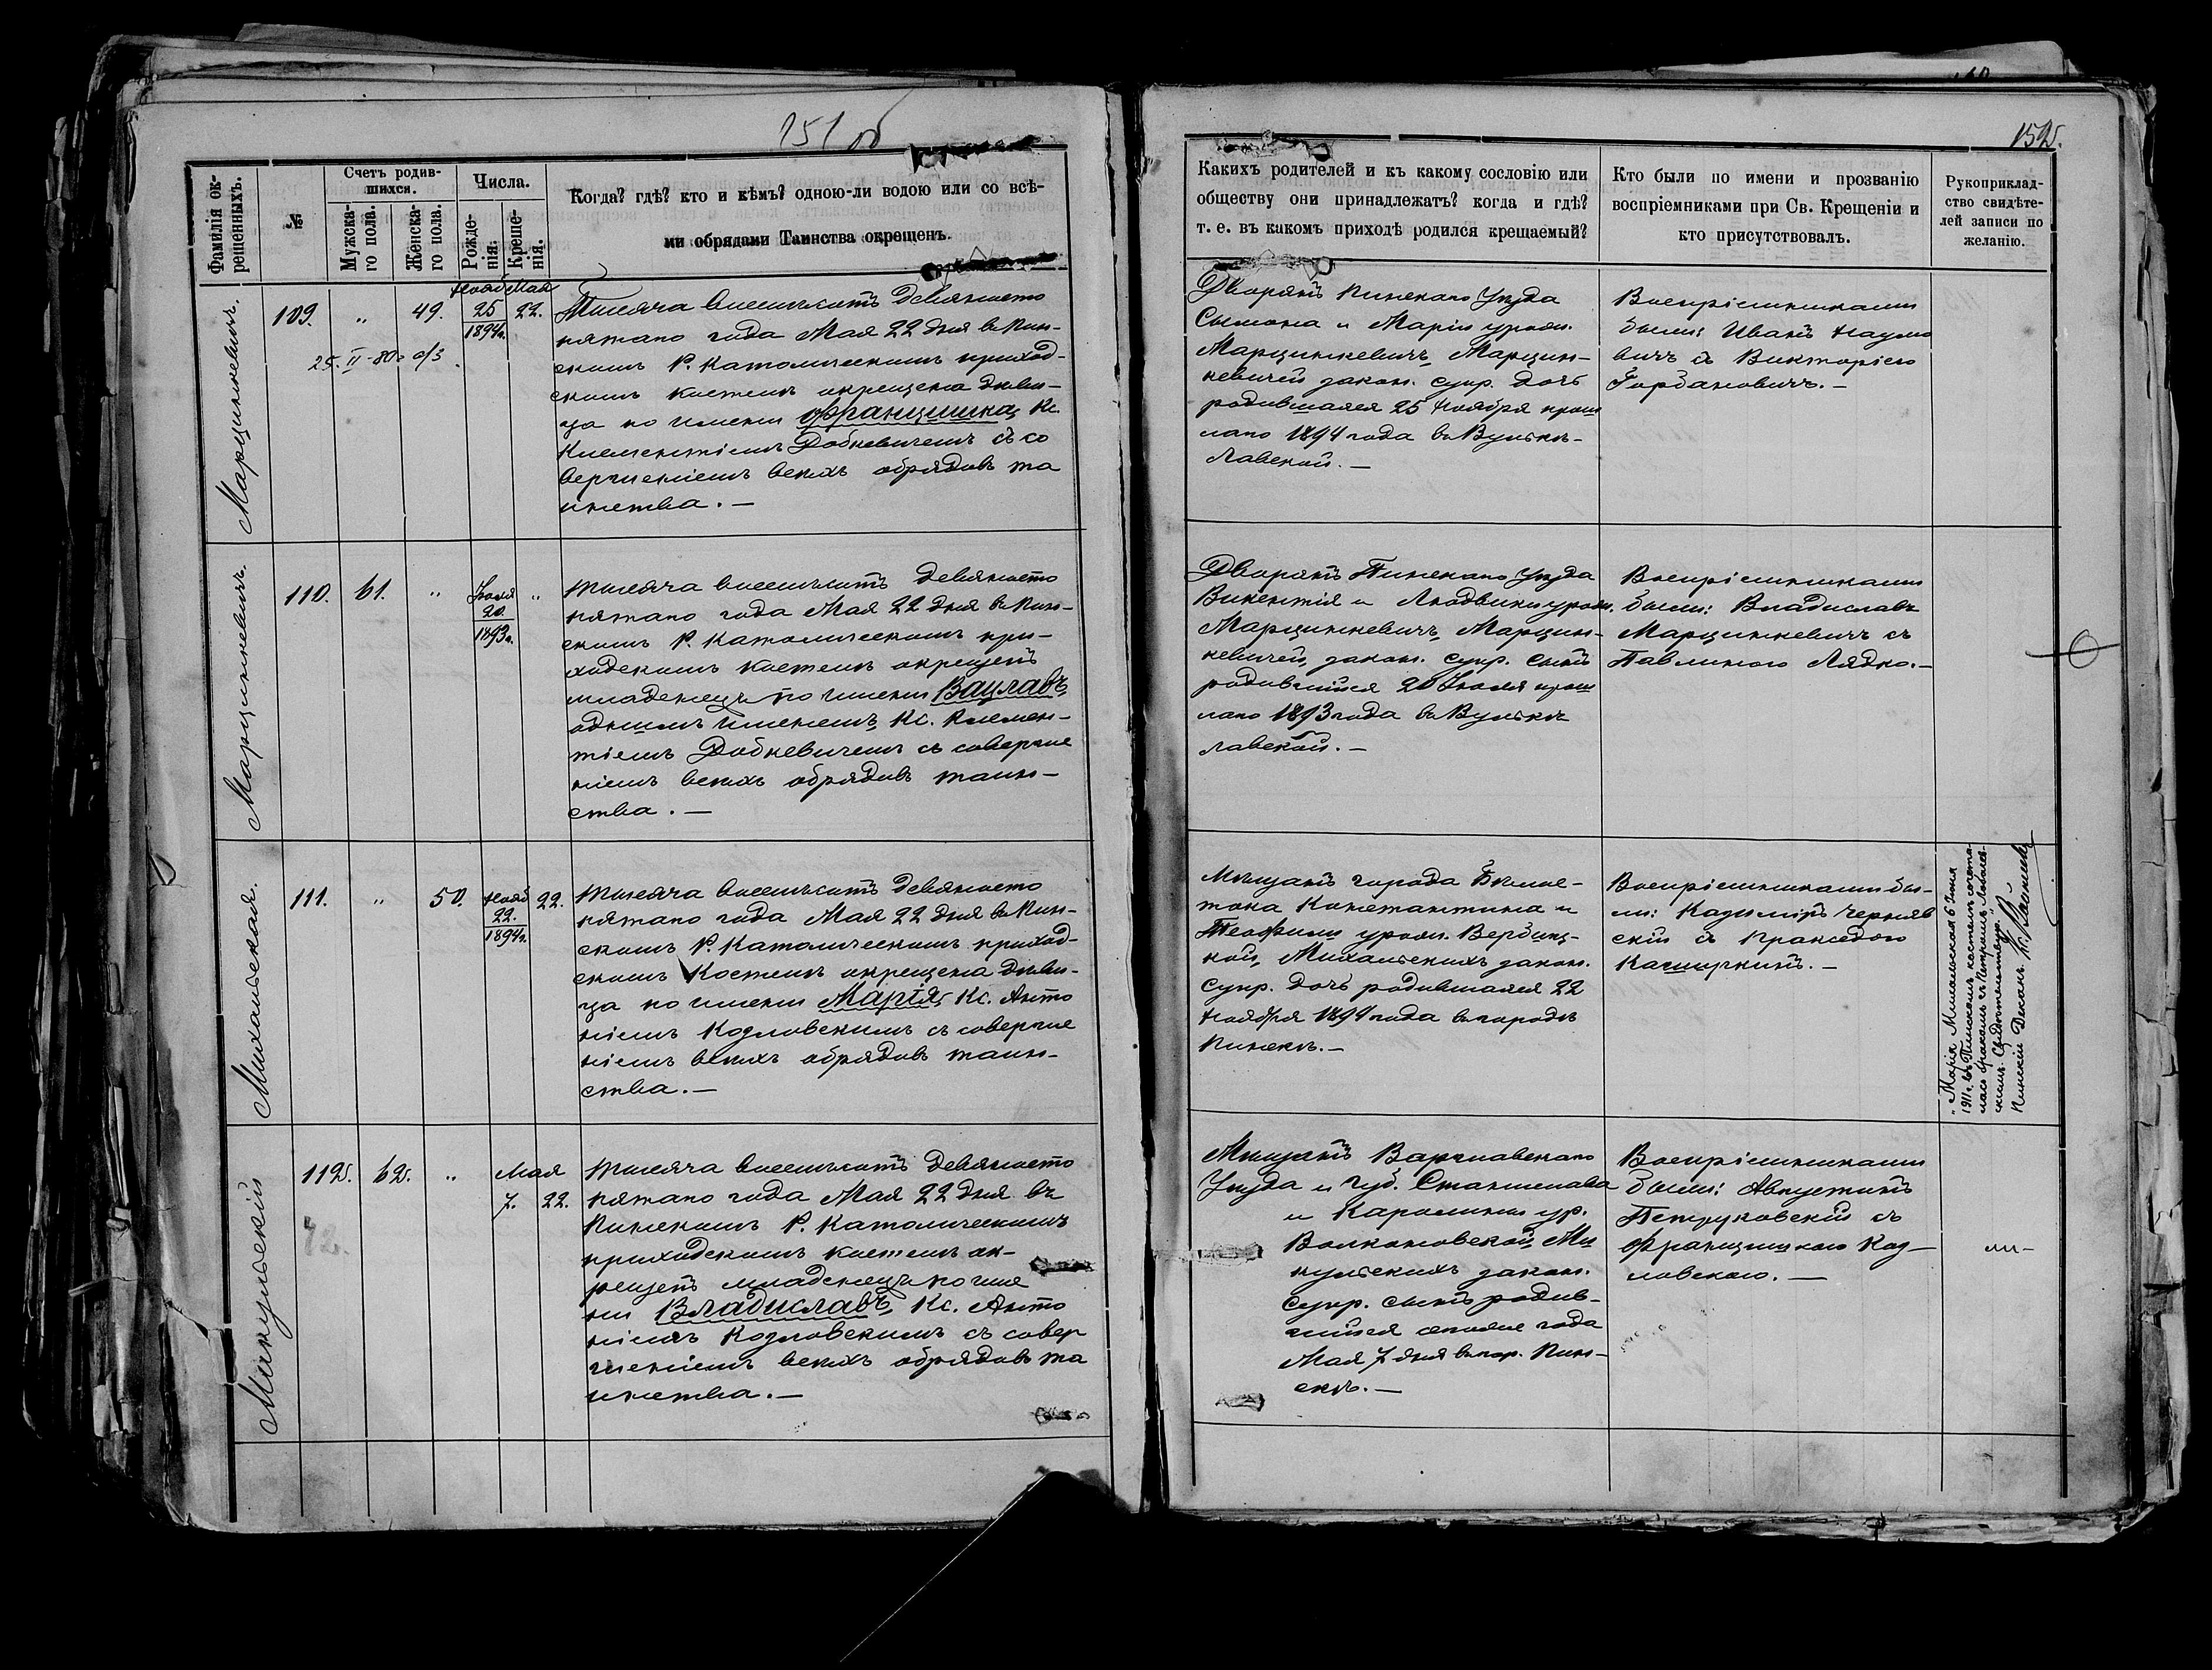 151 об
Фамилія ок-
рещенныхъ.
№
Счетъ родив-
шихся.
Мужска-
го пола.
Женска-
го пола.
Числа.
Рожде-
нія.
Креще-
нія.
Когда? гдѣ? кто и кѣмъ? одною-ли водою или со всѣ-
ми обрядами Таинства окрещенъ.
Марцинкевичъ.
109.
"
49.
Нояб
25
1894г.
Мая
22.
25. II-80г
Тысяча восемьсотъ девяносто
пятаго года Мая 22 дня въ Пин-
скомъ Р. Католическомъ приход-
скомъ костелѣ окрещена дѣви-
ца по имени Францишка, Кс.
Клементіемъ Добкевичемъ съ со
вершеніемъ всѣхъ обрядовъ та
инства. —
Марцинкевичъ.
110.
61.
"
Іюля
20.
1893г.
"
Тысяча восемьсотъ девяносто
пятаго года Мая 22 дня въ Пин-
скомъ Р. Католическомъ при-
ходскомъ костелѣ окрещенъ
младенецъ по имени Вацлавъ,
однимъ именемъ, Кс. Клемен-
тіемъ Добкевичемъ съ соверше
ніемъ всѣхъ обрядовъ таин-
ства. —
Михальская.
111.
"
50.
Нояб
22.
1894г.
22.
Тысяча восемьсотъ девяносто
пятаго года Мая 22 дня въ Пин-
скомъ Р. Католическомъ приход-
скомъ Костелѣ окрещена дѣви-
ца по имени Марія, Кс. Анто
ніемъ Козловскимъ съ соверше
ніемъ всѣхъ обрядовъ таин-
ства. —
Микульскій
112.
62.
"
Мая
7.
22.
Тысяча восемьсотъ девяносто
пятаго года Мая 22 дня въ
Пинскомъ Р. Католическомъ
приходскомъ костелѣ ок-
рещенъ младенецъ по име
ни Владиславъ, Кс. Анто
ніемъ Козловскимъ съ совер
шеніемъ всѣхъ обрядовъ та
инства. —
152.
Какихъ родителей и къ какому сословію или
обществу они принадлежатъ? когда и гдѣ?
т. е. въ какомъ приходѣ родился крещаемый?
Кто были по имени и прозванію
воспріемниками при Св. Крещеніи и
кто присутствовалъ.
Рукоприклад-
ство свидѣте-
лей записи по
желанію.
Дворянъ Пинскаго Уѣзда
Сымона и Маріи урожд.
Марцинкевичъ, Марцин-
кевичей закон. супр. дочь
родившаяся 25 Ноября прош
лаго 1894 года въ Вулькѣ-
Лавской. —
Воспріемниками
были: Иванъ Наумо
вичъ съ Викторіею
Горбановичъ. —
Дворянъ Пинскаго Уѣзда
Викентія и Людвики урож.
Марцинкевичъ, Марцин-
кевичей, закон. супр. сынъ
родившійся 20 Іюля прош
лаго 1893 года въ Вулькѣ
лавской. —
Воспріемниками
были: Владиславъ
Марцинкевичъ съ
Павлиною Лядко. —
Мѣщанъ города Бѣлос-
тока Константина и
Теофили урож. Вербиц-
кой, Михальскихъ закон.
Супр. дочь родившаяся 22
Ноября 1894 года въ городѣ
Пинскѣ. —
Воспріемниками бы-
ли: Казиміръ Черняв
скій съ Пракседою
Качмаркинъ. —
"Марія Михальская 6 Іюня
1911 г. въ Пинскомъ костелѣ сочета-
лась бракомъ съ Петромъ
скимъ. Свидѣтельствую."
Пинскій Деканъ. Кс.
Мѣщанъ Варшавскаго
Уѣзда и губ. Станислава
и Каролины ур.
Волкановской, Ми
кульскихъ закон.
супр. сынъ родив-
шійся сегоже года
Мая 7 дня въ гор. Пин-
скѣ. —
Воспріемниками
были: Августинъ
Петруковскій съ
Францишкою Коз-
ловскою. —